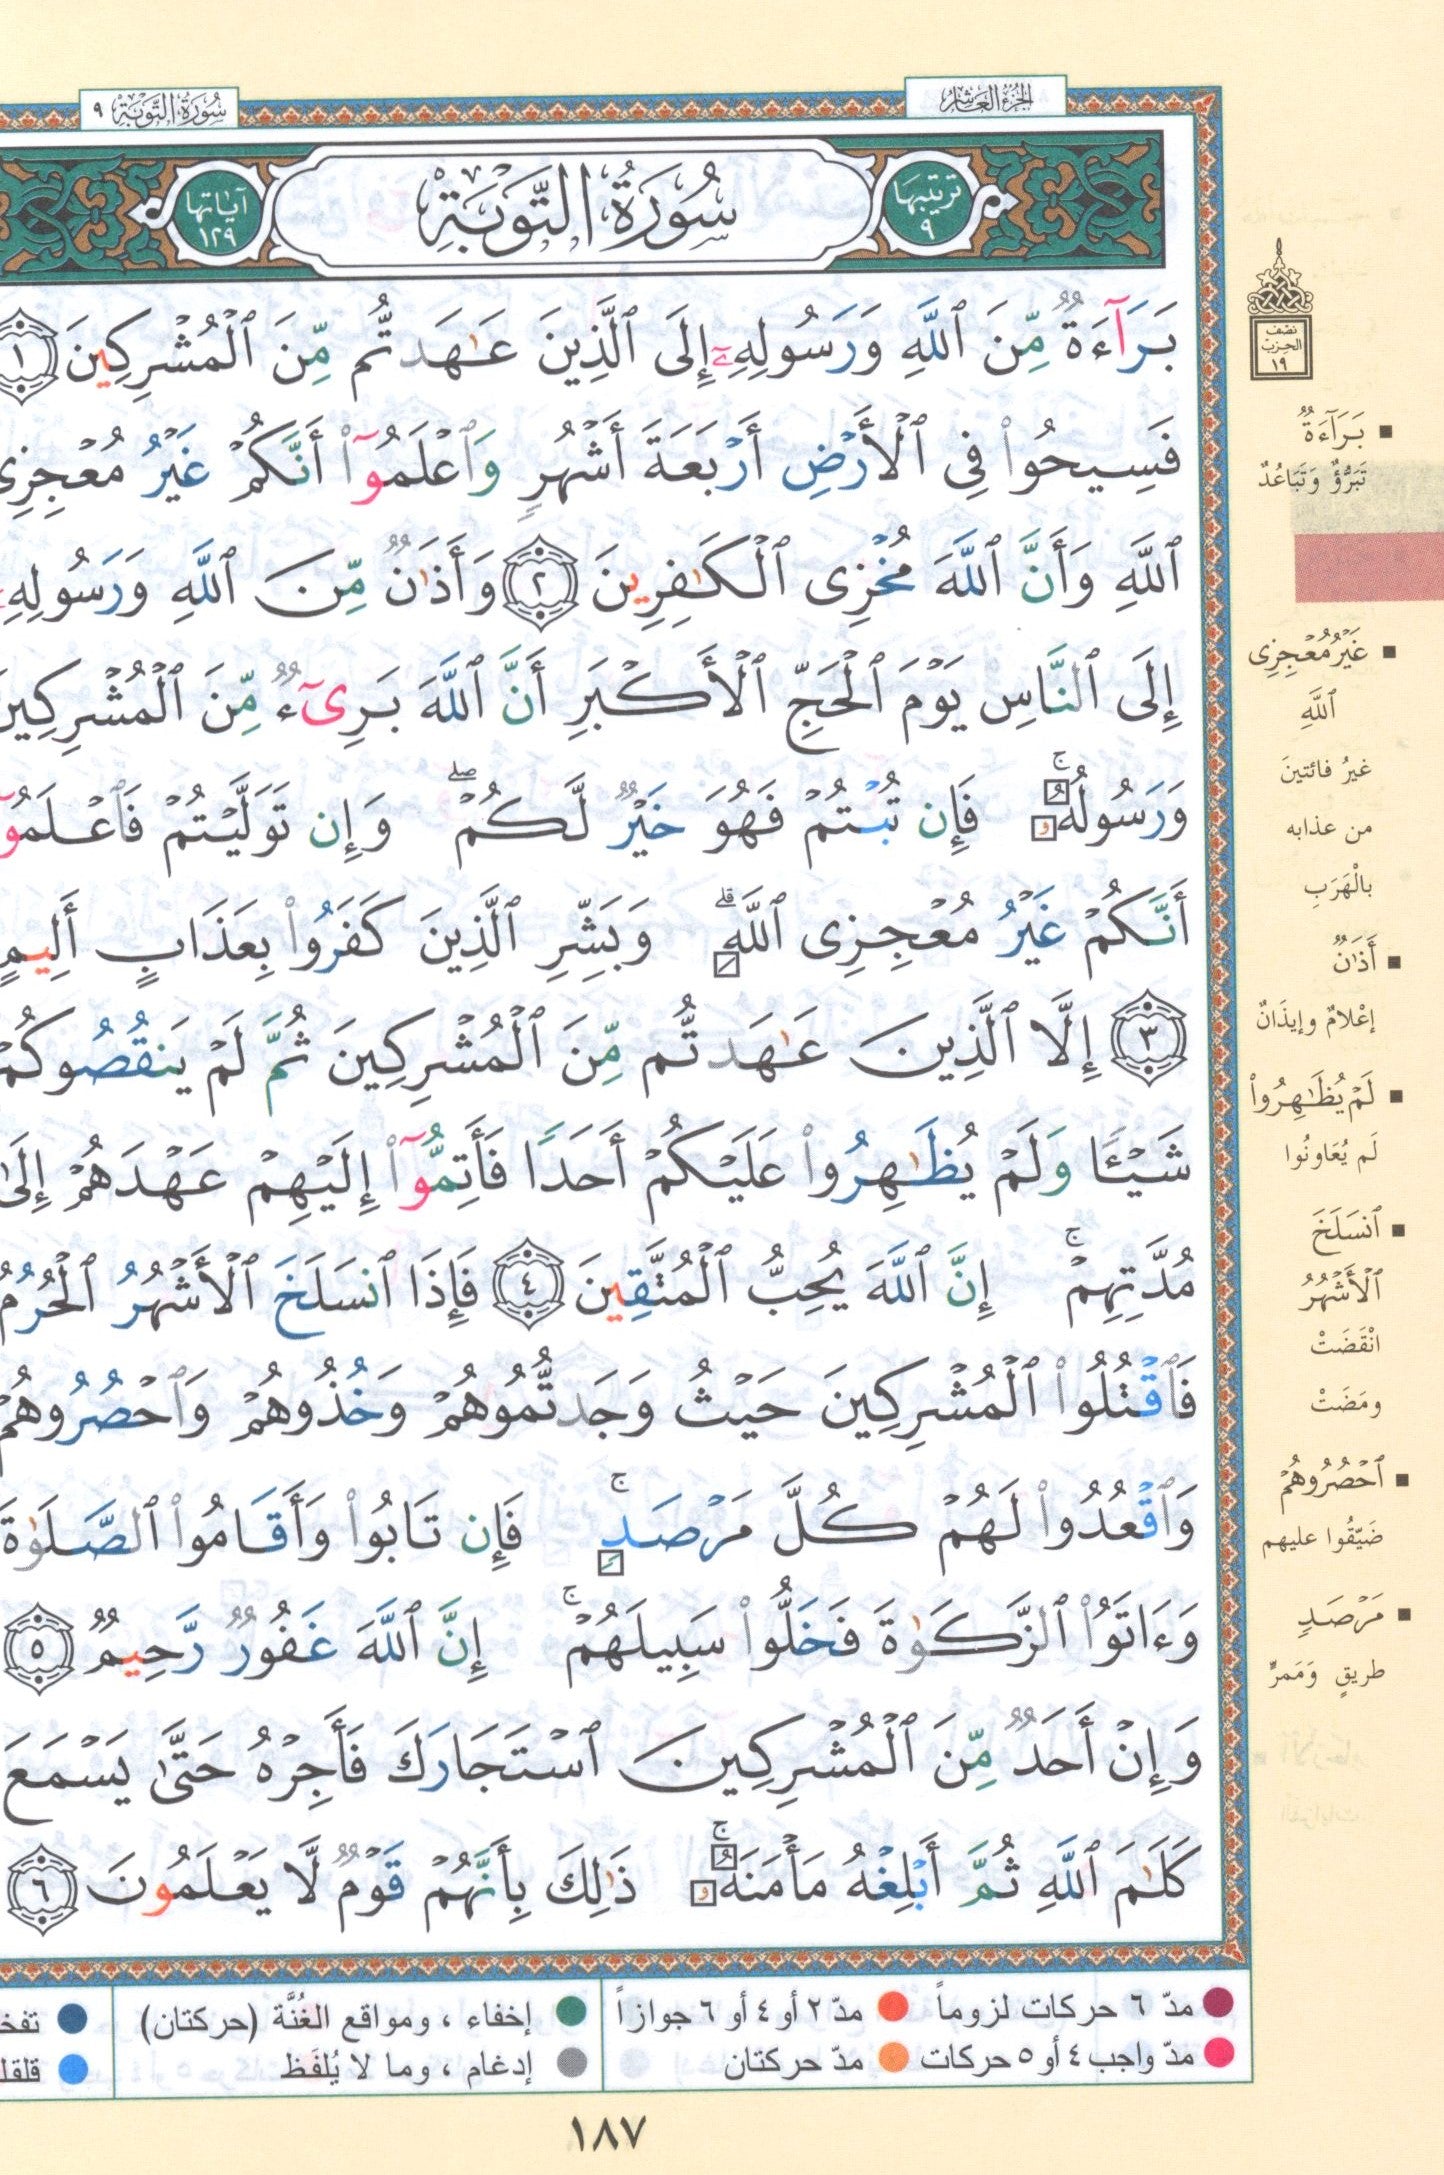 الجزء العاشر
سورة التوبة ٩
ترتيبها ٩
سُورَةُ التَّوْبَةِ
آياتها ١٢٩
بَرَآءَةٌ مِّنَ ٱللَّهِ وَرَسُولِهِۦٓ إِلَى ٱلَّذِينَ عَٰهَدتُّم مِّنَ ٱلْمُشْرِكِينَ ١
فَسِيحُوا۟ فِى ٱلْأَرْضِ أَرْبَعَةَ أَشْهُرٍ وَٱعْلَمُوٓا۟ أَنَّكُمْ غَيْرُ مُعْجِزِى
ٱللَّهِ وَأَنَّ ٱللَّهَ مُخْزِى ٱلْكَٰفِرِينَ ٢ وَأَذَٰنٌ مِّنَ ٱللَّهِ وَرَسُولِهِۦٓ
إِلَى ٱلنَّاسِ يَوْمَ ٱلْحَجِّ ٱلْأَكْبَرِ أَنَّ ٱللَّهَ بَرِىٓءٌ مِّنَ ٱلْمُشْرِكِينَ
وَرَسُولُهُۥ ۚ فَإِن تُبْتُمْ فَهُوَ خَيْرٌ لَّكُمْ ۖ وَإِن تَوَلَّيْتُمْ فَٱعْلَمُوٓا۟
أَنَّكُمْ غَيْرُ مُعْجِزِى ٱللَّهِ ۗ وَبَشِّرِ ٱلَّذِينَ كَفَرُوا۟ بِعَذَابٍ أَلِيمٍ
٣ إِلَّا ٱلَّذِينَ عَٰهَدتُّم مِّنَ ٱلْمُشْرِكِينَ ثُمَّ لَمْ يَنقُصُوكُمْ
شَيْـًٔا وَلَمْ يُظَٰهِرُوا۟ عَلَيْكُمْ أَحَدًا فَأَتِمُّوٓا۟ إِلَيْهِمْ عَهْدَهُمْ إِلَىٰ
مُدَّتِهِمْ ۚ إِنَّ ٱللَّهَ يُحِبُّ ٱلْمُتَّقِينَ ٤ فَإِذَا ٱنسَلَخَ ٱلْأَشْهُرُ ٱلْحُرُمُ
فَٱقْتُلُوا۟ ٱلْمُشْرِكِينَ حَيْثُ وَجَدتُّمُوهُمْ وَخُذُوهُمْ وَٱحْصُرُوهُمْ
وَٱقْعُدُوا۟ لَهُمْ كُلَّ مَرْصَدٍ ۚ فَإِن تَابُوا۟ وَأَقَامُوا۟ ٱلصَّلَوٰةَ
وَءَاتَوُا۟ ٱلزَّكَوٰةَ فَخَلُّوا۟ سَبِيلَهُمْ ۚ إِنَّ ٱللَّهَ غَفُورٌ رَّحِيمٌ ٥
وَإِنْ أَحَدٌ مِّنَ ٱلْمُشْرِكِينَ ٱسْتَجَارَكَ فَأَجِرْهُ حَتَّىٰ يَسْمَعَ
كَلَٰمَ ٱللَّهِ ثُمَّ أَبْلِغْهُ مَأْمَنَهُۥ ۚ ذَٰلِكَ بِأَنَّهُمْ قَوْمٌ لَّا يَعْلَمُونَ ٦
نصف
الحزب
١٩
بَرَآءَةٌ
تَبَرُّؤٌ وَتَبَاعُدٌ
غَيْرُ مُعْجِزِى
ٱللَّهِ
غيرُ فائتينَ
من عذابه
بالْهَرَبِ
أَذَٰنٌ
إعْلامٌ وإيذَانٌ
لَمْ يُظَٰهِرُوا۟
لَم يُعَاونُوا
ٱنسَلَخَ
ٱلْأَشْهُرُ
انْقَضَتْ
ومَضَتْ
ٱحْصُرُوهُمْ
ضَيّقُوا عليهم
مَرْصَدٍ
طريقٍ وَمَمرٍّ
مدّ ٦ حركات لزوماً
مدّ ٢ أو ٤ أو ٦ جوازاً
إخفاء ، ومواقع الغُنَّة (حركتان)
تفخ
مدّ واجب ٤ أو ٥ حركات
مدّ حركتان
إدغام ، وما لا يُلفَظ
قلقل
١٨٧